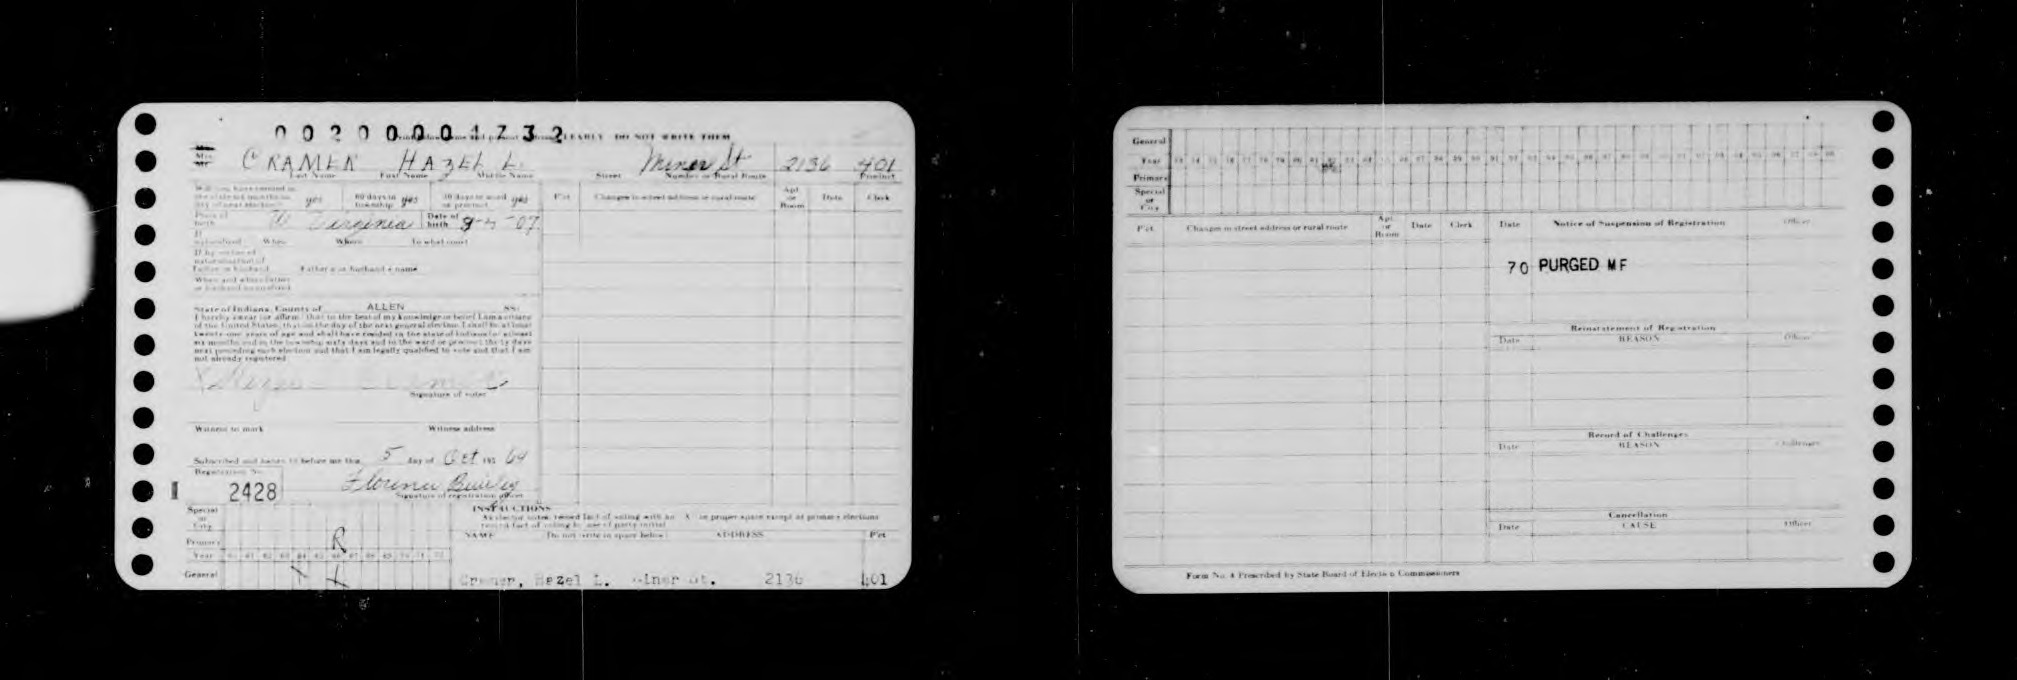 0020000 1732
CLEARLY DO NOT WRITE THEM
CRAMER HAZEL L. Miner St 2136 401
Last Name First Name Middle Name Street Number or Rural Route Precinct
yes 60 days in township yes 30 days in ward or precinct yes P'ct Changes in street address or rural route Apt or Room Date Clerk
Place of birth W. Virginia Date of birth -07
If naturalized When Where To what court
If by virtue of naturalization of
Father or husband Father's or husband's name
When and where father or husband naturalized
State of Indiana, County of ALLEN SS:
I hereby swear (or affirm) that to the best of my knowledge or belief I am a citizen
of the United States; that on the day of the next general election I shall be at least
twenty-one years of age and shall have resided in the state of Indiana for at least
six months and in the township sixty days and in the ward or precinct thirty days
next preceding such election and that I am legally qualified to vote and that I am
not already registered
X Hazel Cramer
Signature of voter
Witness to mark Witness address
Subscribed and sworn to before me this 5 day of Oct 19 64
Registration No.
2428 Florence
Signature of registration officer
Special or City
INSTRUCTIONS
As elector votes, record fact of voting with an X in proper space except at primary elections
record fact of voting by use of party initial
Primary R
NAME Do not write in space below ADDRESS P'ct
Year 60 61 62 63 64 65 66 67 68 69 70 71 72
General X X
Cramer, Hazel L. Miner St. 2136 401
General
Year
Primary
Special or City
P'ct Changes in street address or rural route Apt or Room Date Clerk Date Notice of Suspension of Registration Officer
70 PURGED MF
Reinstatement of Registration
Date REASON Officer
Record of Challenges
Date REASON Challenger
Cancellation
Date CAUSE Officer
Form No. 4 Prescribed by State Board of Election Commissioners